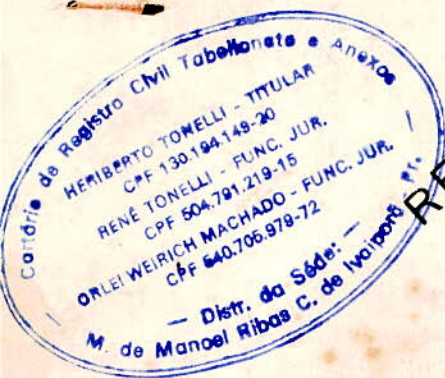 Cartório de Registro Civil Tabelionato e Anexos
HERIBERTO TONELLI - TITULAR
CPF 130.194.149-20
RENÊ TONELLI - FUNC. JUR.
CPF 504.791.219-15
ORLEI WEIRICH MACHADO - FUNC. JUR.
CPF 540.705.979-72
— Distr. da Séde: —
M. de Manoel Ribas C. de Ivaiporã - Pr.
RE